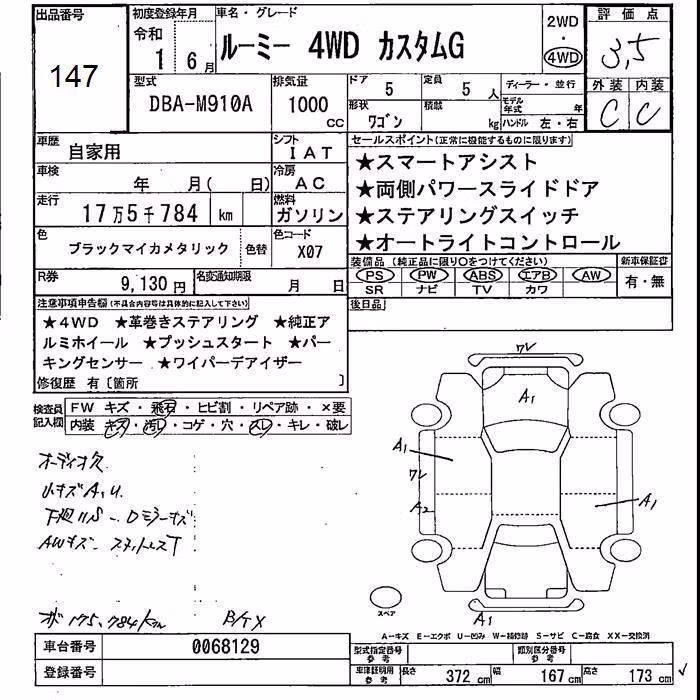 出品番号
147
初度登録年月
令和
1 6月
車名・グレード
ルーミー 4WD カスタムG
2WD
・
4WD
評価点
3,5
外装 内装
C C
型式
DBA-M910A
排気量
1000 CC
ドア
5
定員
5 人
ディーラー・並行
形状
ワゴン
積載
kg
モデル年式 年
ハンドル 左・右
車歴
自家用
シフト
IAT
車検
年 月( 日)
冷房
AC
走行
17万5千784 km
燃料
ガソリン
色
ブラックマイカメタリック
色替
色コード
X07
R券
9,130円
名変通知期限
月 日
セールスポイント(正常に機能するものに限ります)
★スマートアシスト
★両側パワースライドドア
★ステアリングスイッチ
★オートライトコントロール
装備品 (純正品に限り○をつけてください)
PS PW ABS エアB AW
SR ナビ TV カワ
新車保証書
有・無
後日品
注意事項申告欄(不具合内容等は具体的に記入して下さい)
★4WD ★革巻きステアリング ★純正ア
ルミホイール ★プッシュスタート ★パー
キングセンサー ★ワイパーデアイザー
修復歴 有〔箇所 〕
検査員記入欄
FW キズ・飛石・ヒビ割・リペア跡・×要
内装 キズ・汚レ・コゲ・穴・スレ・キレ・破レ
オーディオ欠
小キズA,U
下廻りS - Dミラーキズ
AWキズ -
175,784km
ワレ
A1
A1
ワレ
A2
A1
A1
スペア
A-キズ E-エクボ U-凹み W-補修跡 S-サビ C-腐食 XX-交換済
車台番号
0068129
登録番号
型式指定番号
参考
類別区分番号
参考
車検証明用
参考
長さ 372 cm 幅 167 cm 高さ 173 cm